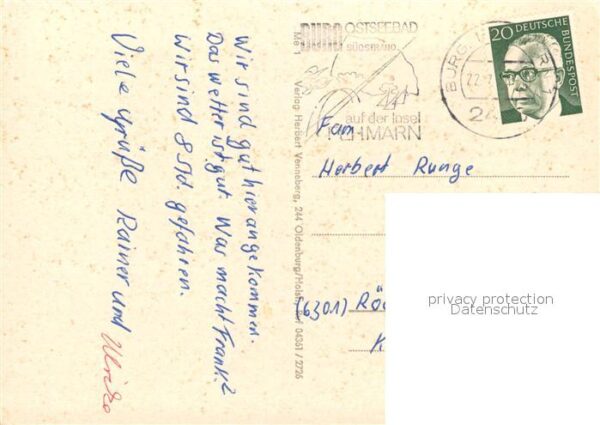 Wir sind gut hier angekommen.
Das Wetter ist gut. Was macht Frank?
Wir sind 8 Std. gefahren.
Viele Grüße Rainer und
Ulrike
Me 1
Verlag Herbert Venneberg, 244 Oldenburg/Holstein, Ruf 04361 / 2726
BURG OSTSEEBAD
SÜDSTRAND
auf der Insel
FEHMARN
BURG
24
20 DEUTSCHE
BUNDESPOST
Fam
Herbert Runge
(6301) Rö
K
privacy protection
Datenschutz